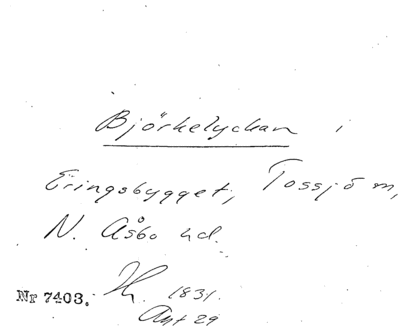 Björkelyckan i
Eringsbygget, Tossjö m,
N. Åsbo hd.
Nr 7403. Lh. 1831.
Akt 29